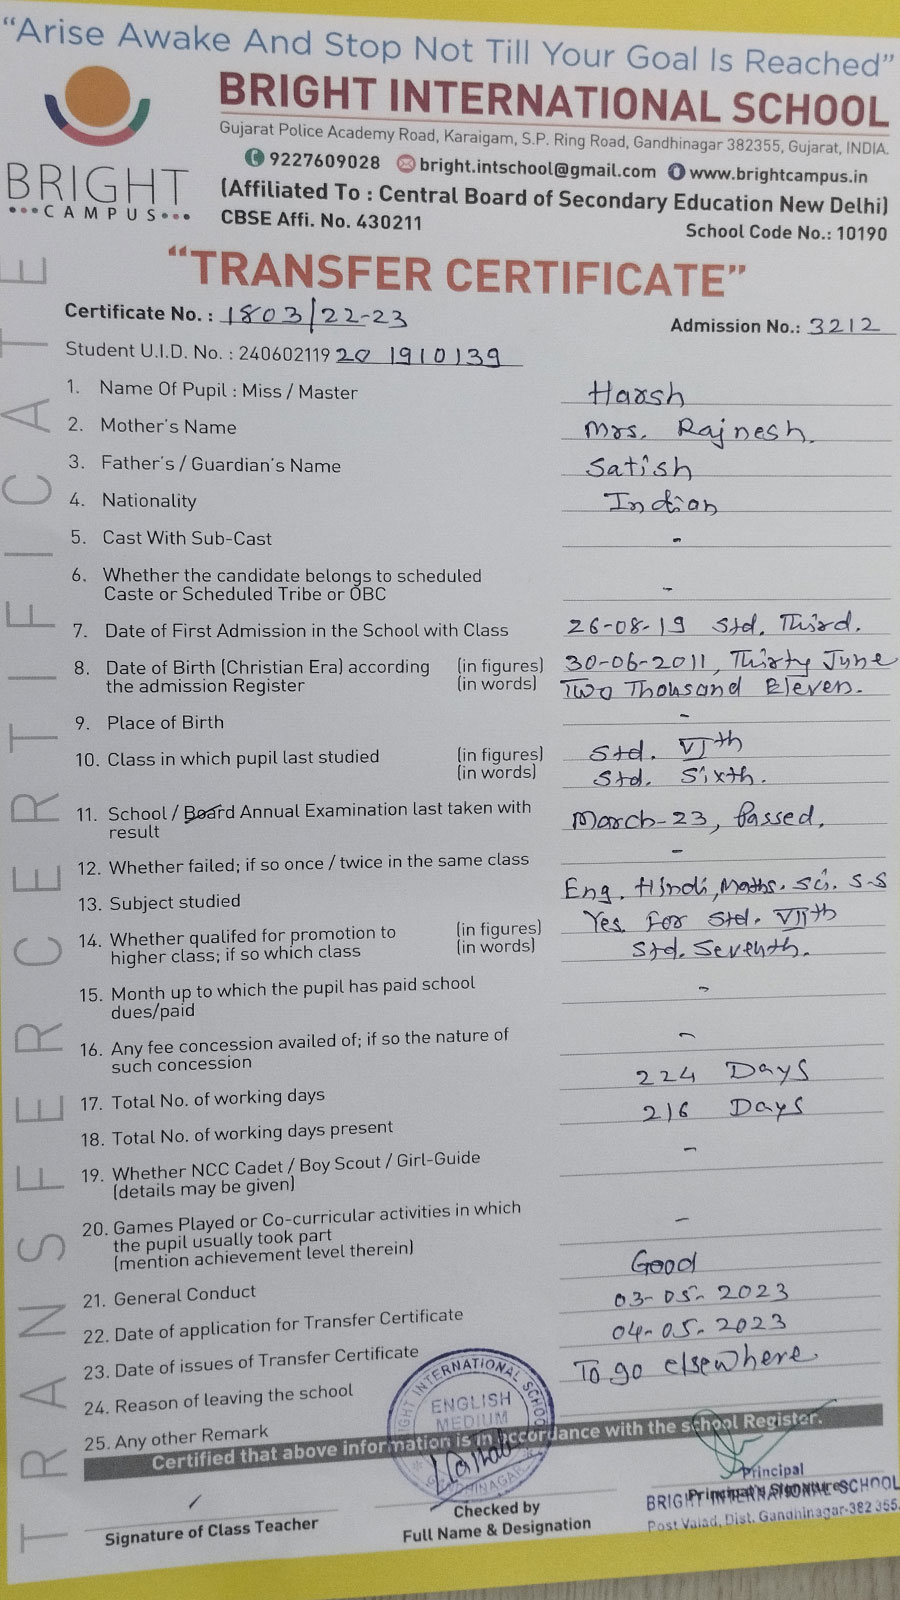 "Arise Awake And Stop Not Till Your Goal Is Reached"
BRIGHT
•••CAMPUS•••
BRIGHT INTERNATIONAL SCHOOL
Gujarat Police Academy Road, Karaigam, S.P. Ring Road, Gandhinagar 382355, Gujarat, INDIA.
9227609028 bright.intschool@gmail.com www.brightcampus.in
(Affiliated To : Central Board of Secondary Education New Delhi)
CBSE Affi. No. 430211 School Code No.: 10190
"TRANSFER CERTIFICATE"
TRANSFER CERTIFICATE
Certificate No. : 1803/22-23 Admission No.: 3212
Student U.I.D. No. : 240602119 20 1910139
1. Name Of Pupil : Miss / Master Harsh
2. Mother's Name Mrs. Rajnesh.
3. Father's / Guardian's Name Satish
4. Nationality Indian
5. Cast With Sub-Cast -
6. Whether the candidate belongs to scheduled
Caste or Scheduled Tribe or OBC -
7. Date of First Admission in the School with Class 26-08-19 Std. Third.
8. Date of Birth (Christian Era) according (in figures) 30-06-2011, Thirty June
the admission Register (in words) Two Thousand Eleven.
9. Place of Birth -
10. Class in which pupil last studied (in figures) Std. VIth
(in words) Std. Sixth.
11. School / Board Annual Examination last taken with
result March-23, Passed.
12. Whether failed; if so once / twice in the same class -
13. Subject studied Eng. Hindi, Maths. Sci. S-S
14. Whether qualifed for promotion to (in figures) Yes. For Std. VIIth
higher class; if so which class (in words) Std. Seventh.
15. Month up to which the pupil has paid school
dues/paid -
16. Any fee concession availed of; if so the nature of
such concession -
17. Total No. of working days 224 Days
18. Total No. of working days present 216 Days
19. Whether NCC Cadet / Boy Scout / Girl-Guide
(details may be given) -
20. Games Played or Co-curricular activities in which
the pupil usually took part
(mention achievement level therein) -
21. General Conduct Good
22. Date of application for Transfer Certificate 03-05-2023
23. Date of issues of Transfer Certificate 04-05-2023
24. Reason of leaving the school To go elsewhere
25. Any other Remark
Certified that above information is in accordance with the school Register.
BRIGHT INTERNATIONAL SCHOOL
ENGLISH
MEDIUM
GANDHINAGAR
Signature of Class Teacher
Checked by
Full Name & Designation
Principal
Principal's Signature
BRIGHT INTERNATIONAL SCHOOL
Post Valad, Dist. Gandhinagar-382 355.